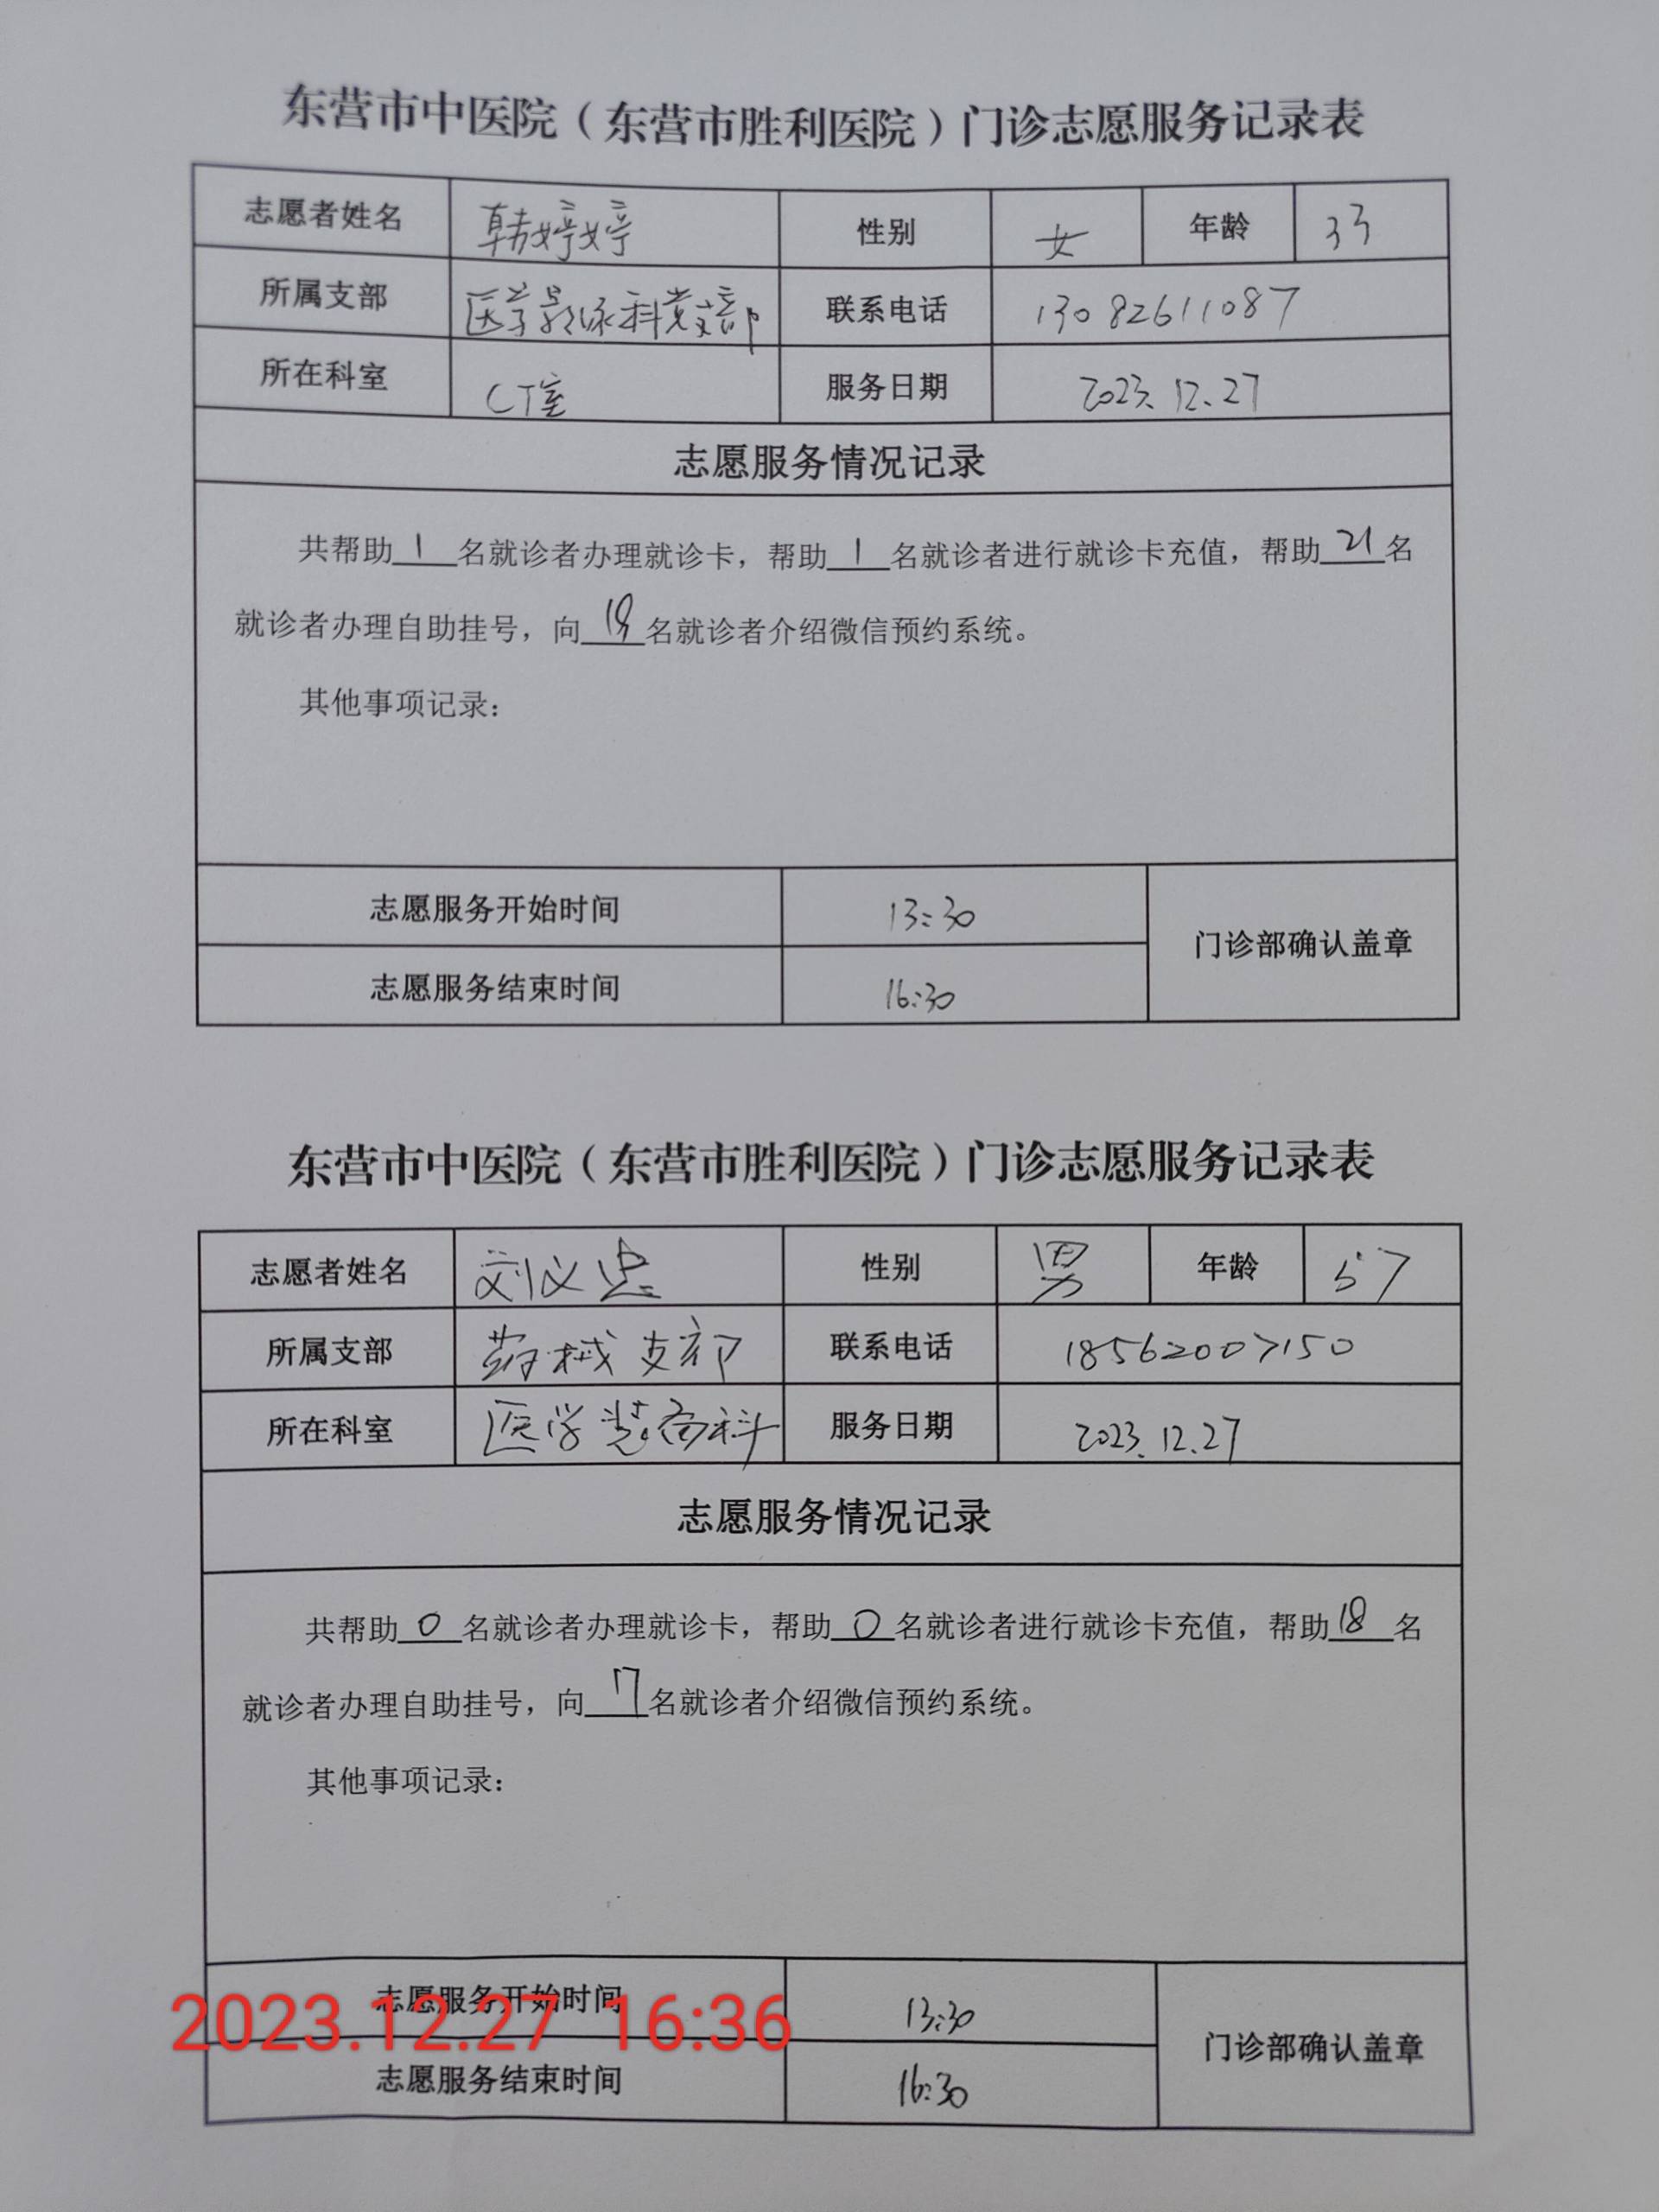 东营市中医院（东营市胜利医院）门诊志愿服务记录表
志愿者姓名 韩婷婷 性别 女 年龄 33
所属支部 医学影像科党支部 联系电话 13082611087
所在科室 CT室 服务日期 2023.12.27
志愿服务情况记录
共帮助1名就诊者办理就诊卡，帮助1名就诊者进行就诊卡充值，帮助21名
就诊者办理自助挂号，向 名就诊者介绍微信预约系统。
其他事项记录：
志愿服务开始时间 13:30
门诊部确认盖章
志愿服务结束时间 16:30
东营市中医院（东营市胜利医院）门诊志愿服务记录表
志愿者姓名 刘义忠 性别 男 年龄 57
所属支部 药械支部 联系电话 18562007150
所在科室 医学装备科 服务日期 2023.12.27
志愿服务情况记录
共帮助0名就诊者办理就诊卡，帮助0名就诊者进行就诊卡充值，帮助18名
就诊者办理自助挂号，向17名就诊者介绍微信预约系统。
其他事项记录：
志愿服务开始时间 13:30
2023.12.27 16:36
门诊部确认盖章
志愿服务结束时间 16:30